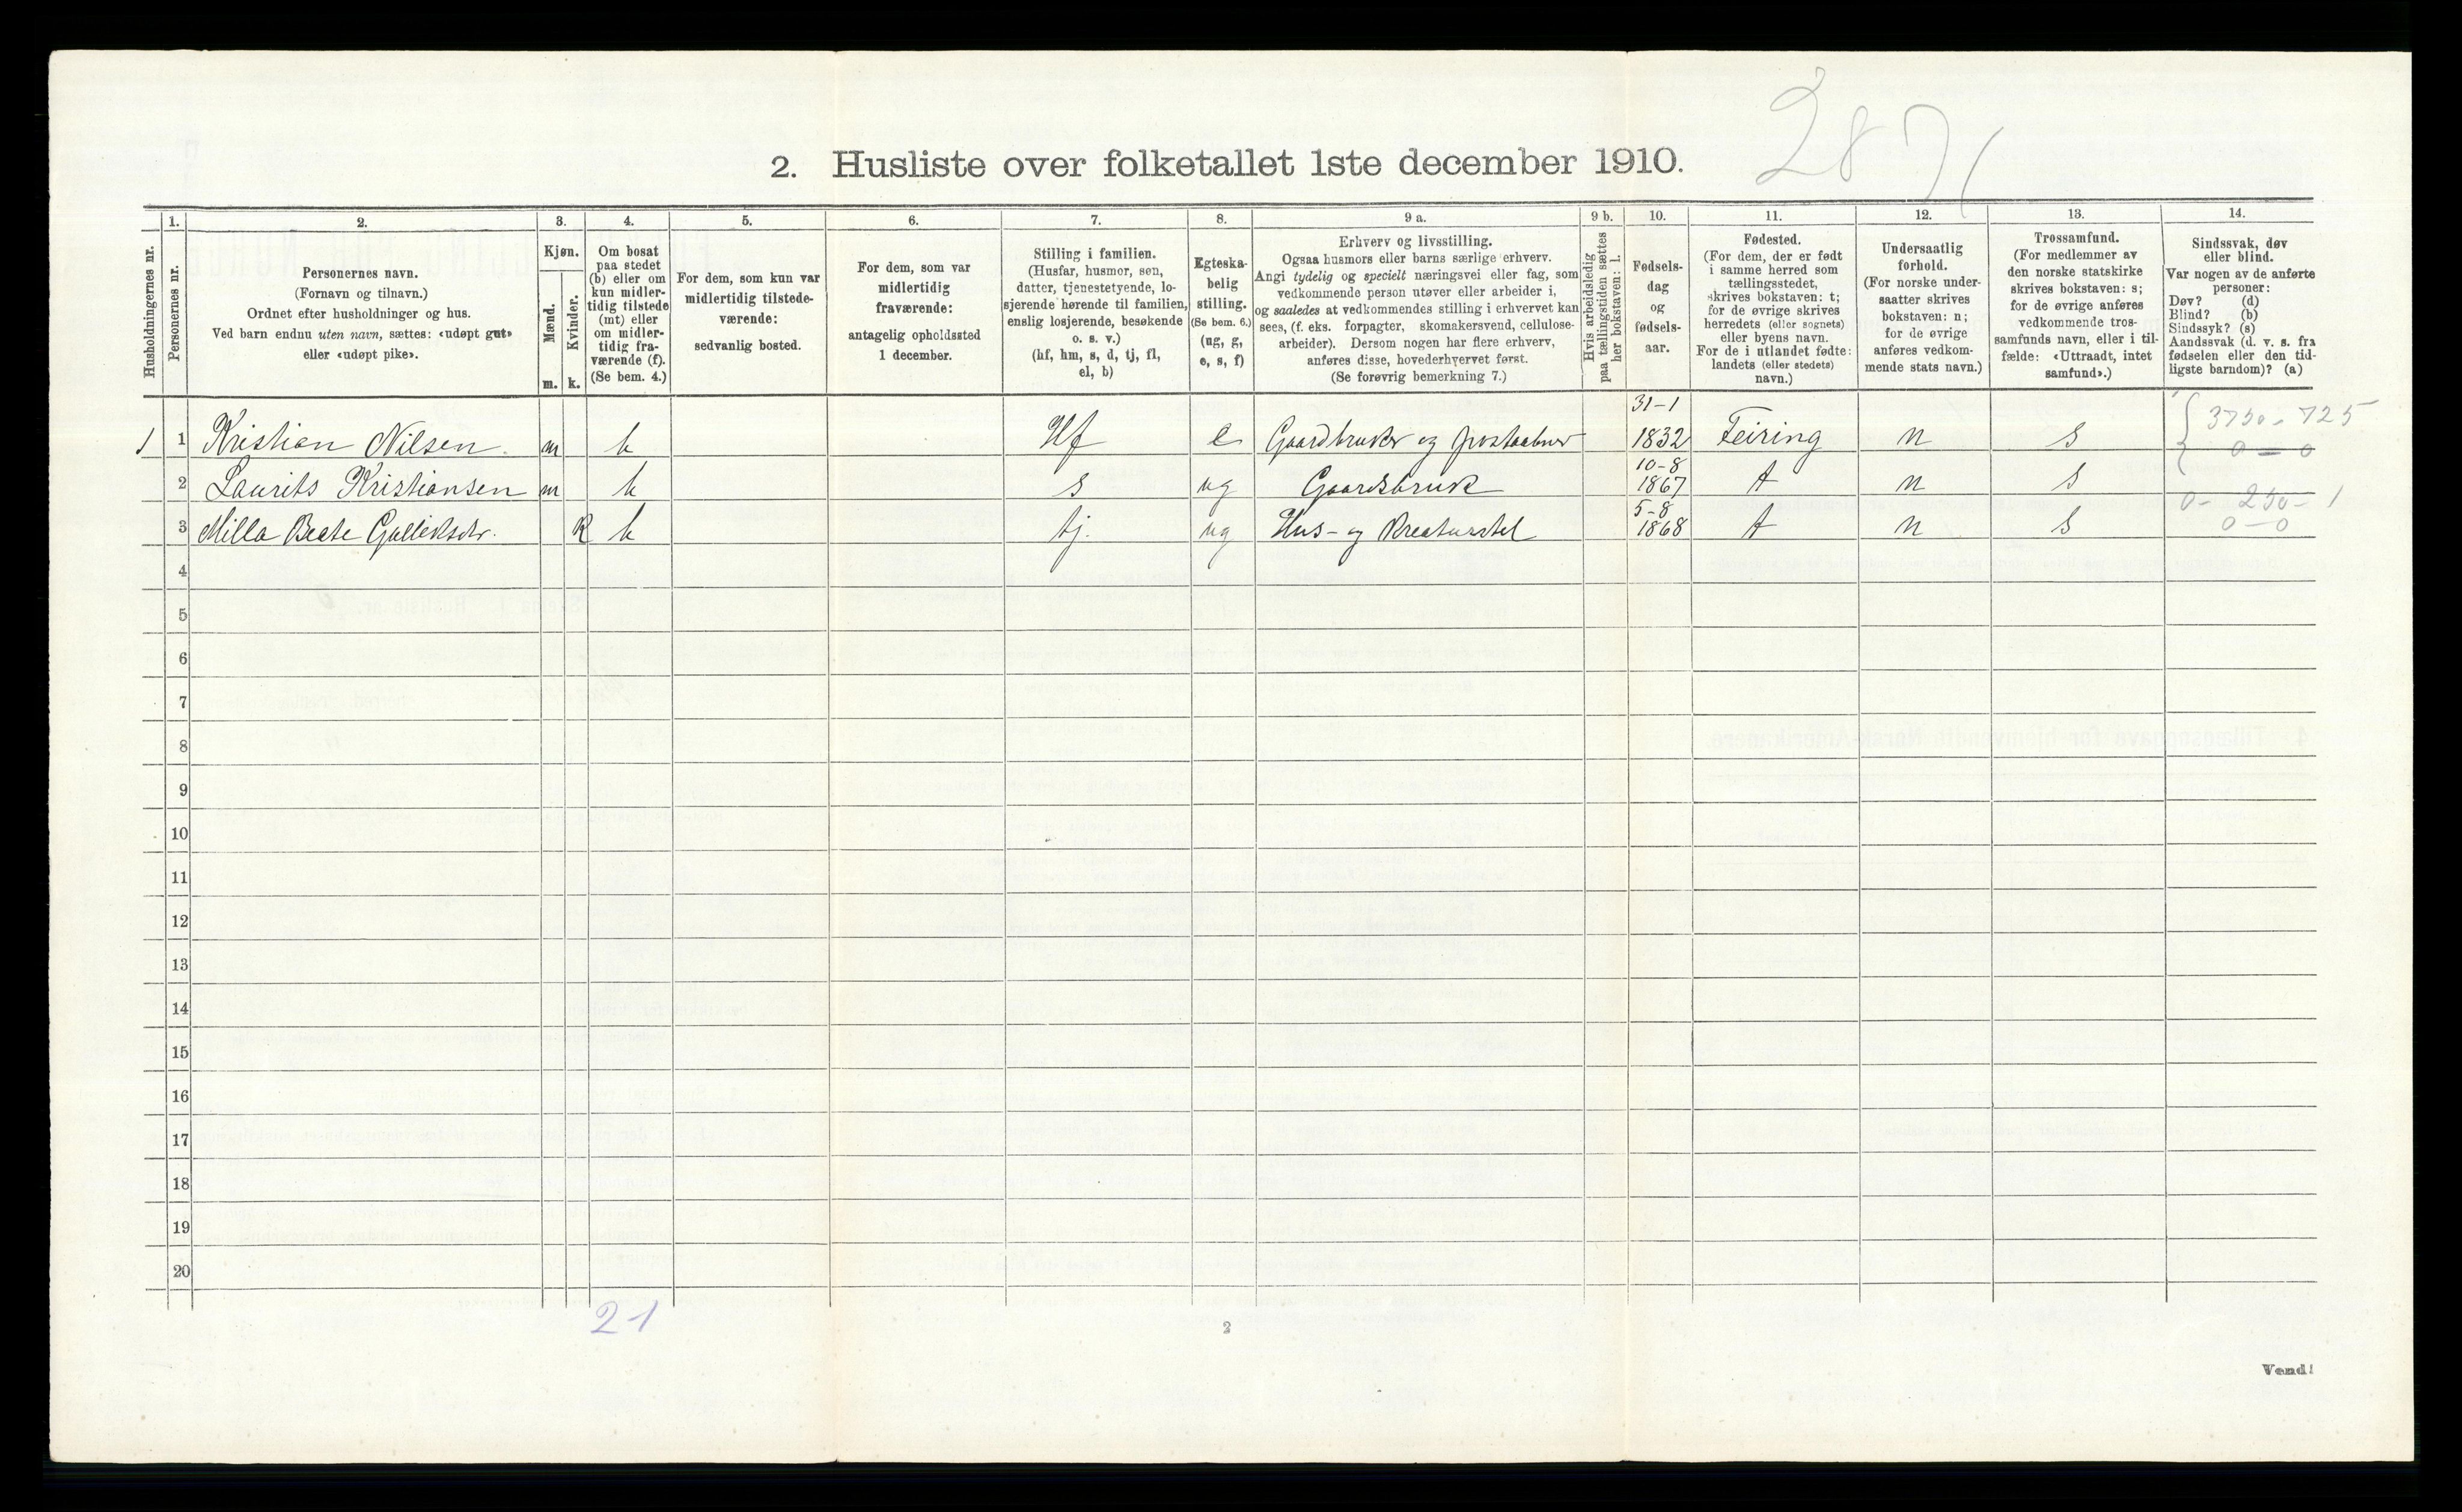 287
2. Husliste over folketallet 1ste december 1910.
Husholdningernes nr.
1.
Personernes nr.
2.
Personernes navn.
(Fornavn og tilnavn.)
Ordnet efter husholdninger og hus.
Ved barn endnu uten navn, sættes: «udøpt gut»
eller «udøpt pike».
3.
Kjøn.
Mænd.
Kvinder.
m. k.
4.
Om bosat
paa stedet
(b) eller om
kun midler-
tidig tilstede
(mt) eller
om midler-
tidig fra-
værende (f).
(Se bem. 4.)
5.
For dem, som kun var
midlertidig tilstede-
værende:
sedvanlig bosted.
6.
For dem, som var
midlertidig
fraværende:
antagelig opholdssted
1 december.
7.
Stilling i familien.
(Husfar, husmor, søn,
datter, tjenestetyende, lo-
sjerende hørende til familien,
enslig losjerende, besøkende
o. s. v.)
(hf, hm, s, d, tj, fl,
el, b)
8.
Egteska-
belig
stilling.
(Se bem. 6.)
(ug, g,
e, s, f)
9 a.
Erhverv og livsstilling.
Ogsaa husmors eller barns særlige erhverv.
Angi tydelig og specielt næringsvei eller fag, som
vedkommende person utøver eller arbeider i,
og saaledes at vedkommendes stilling i erhvervet kan
sees, (f. eks. forpagter, skomakersvend, cellulose-
arbeider). Dersom nogen har flere erhverv,
anføres disse, hovederhvervet først.
(Se forøvrig bemerkning 7.)
9 b.
Hvis arbeidsledig
paa tællingstiden sættes
her bokstaven: l.
10.
Fødsels-
dag
og
fødsels-
aar.
11.
Fødested.
(For dem, der er født
i samme herred som
tællingsstedet,
skrives bokstaven: t;
for de øvrige skrives
herredets (eller sognets)
eller byens navn.
For de i utlandet fødte:
landets (eller stedets)
navn.)
12.
Undersaatlig
forhold.
(For norske under-
saatter skrives
bokstaven: n;
for de øvrige
anføres vedkom-
mende stats navn.)
13.
Trossamfund.
(For medlemmer av
den norske statskirke
skrives bokstaven: s;
for de øvrige anføres
vedkommende tros-
samfunds navn, eller i til-
fælde: «Uttraadt, intet
samfund».)
14.
Sindssvak, døv
eller blind.
Var nogen av de anførte
personer:
Døv? (d)
Blind? (b)
Sindssyk? (s)
Aandssvak (d. v. s. fra
fødselen eller den tid-
ligste barndom)? (a)
1 1 Kristian Nilsen. m b Hf e Gaardbruker og postaabner 31-1 1832 Feiring n s 3750-725 0-0
2 Laurits Kristiansen m b s ug Gaardsbruk 10-8 1867 t n s 0-250-1
3 Milla Beate Gulleksdtr. k b tj. ug Hus- og Kreaturstel 5-8 1868 t n s 0-0
4
5
6
7
8
9
10
11
12
13
14
15
16
17
18
19
20
2 1
2
Vend!